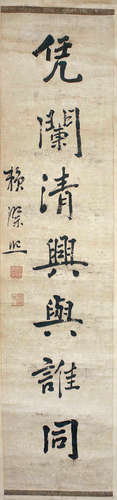 凭闌清興與誰同
賴深